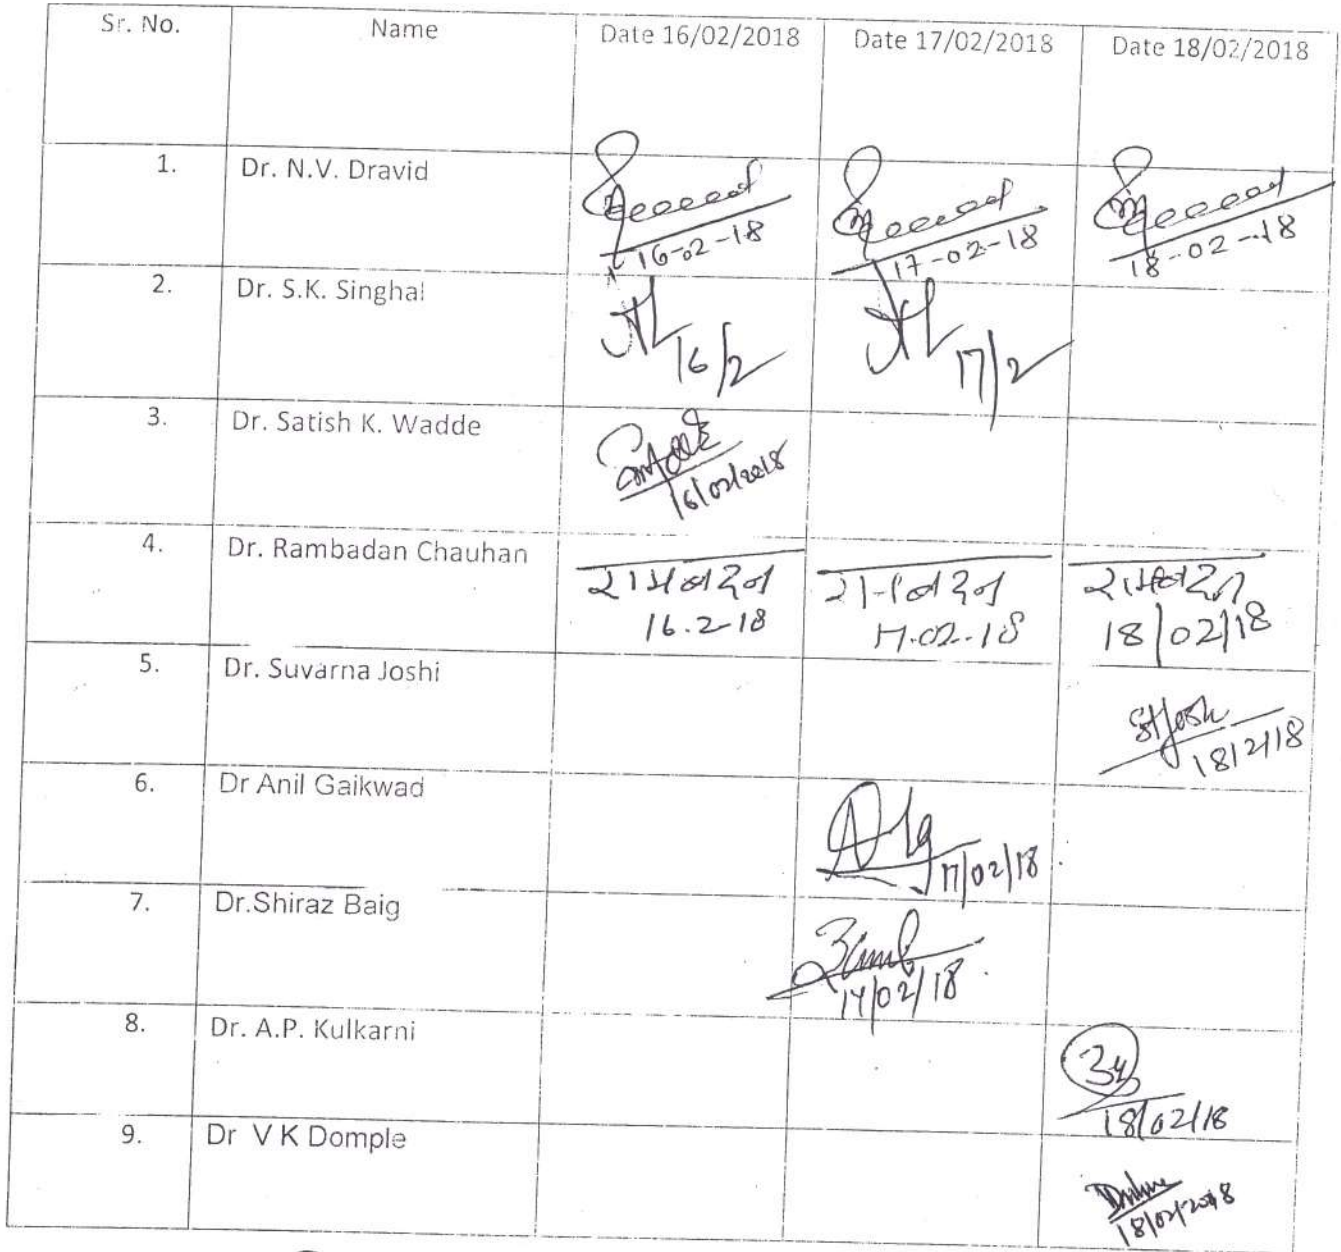 Sr. No. Name Date 16/02/2018 Date 17/02/2018 Date 18/02/2018
1. Dr. N.V. Dravid
16-02-18 17-02-18 18-02-18
2. Dr. S.K. Singhal
16/2 17/2
3. Dr. Satish K. Wadde
16/02/2018
4. Dr. Rambadan Chauhan
रामबदन रामबदन रामबदन
16.2-18 17.02-18 18/02/18
5. Dr. Suvarna Joshi
18/2/18
6. Dr Anil Gaikwad
17/02/18
7. Dr.Shiraz Baig
17/02/18
8. Dr. A.P. Kulkarni
18/02/18
9. Dr V K Domple
18/02/2018